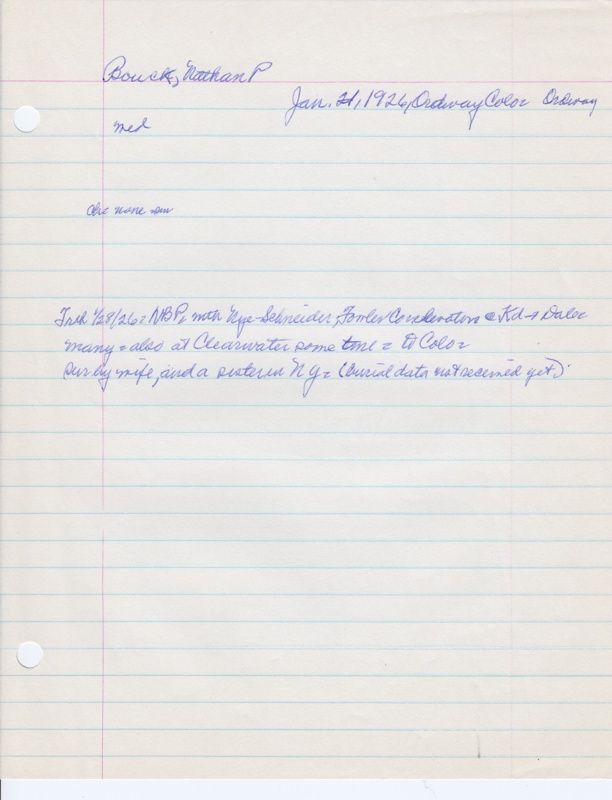 Bouck, Nathan P
Jan. 21, 1926, Ordway Color Ordway
med
Chr none
Frih 1/28/26 = NBP, with Nye-Schneider, Fowler Co elevators @ Kd + Dalec
many = also at Clearwater some time = to Color =
sur by wife, and a sister in N Y = (burial data not received yet).